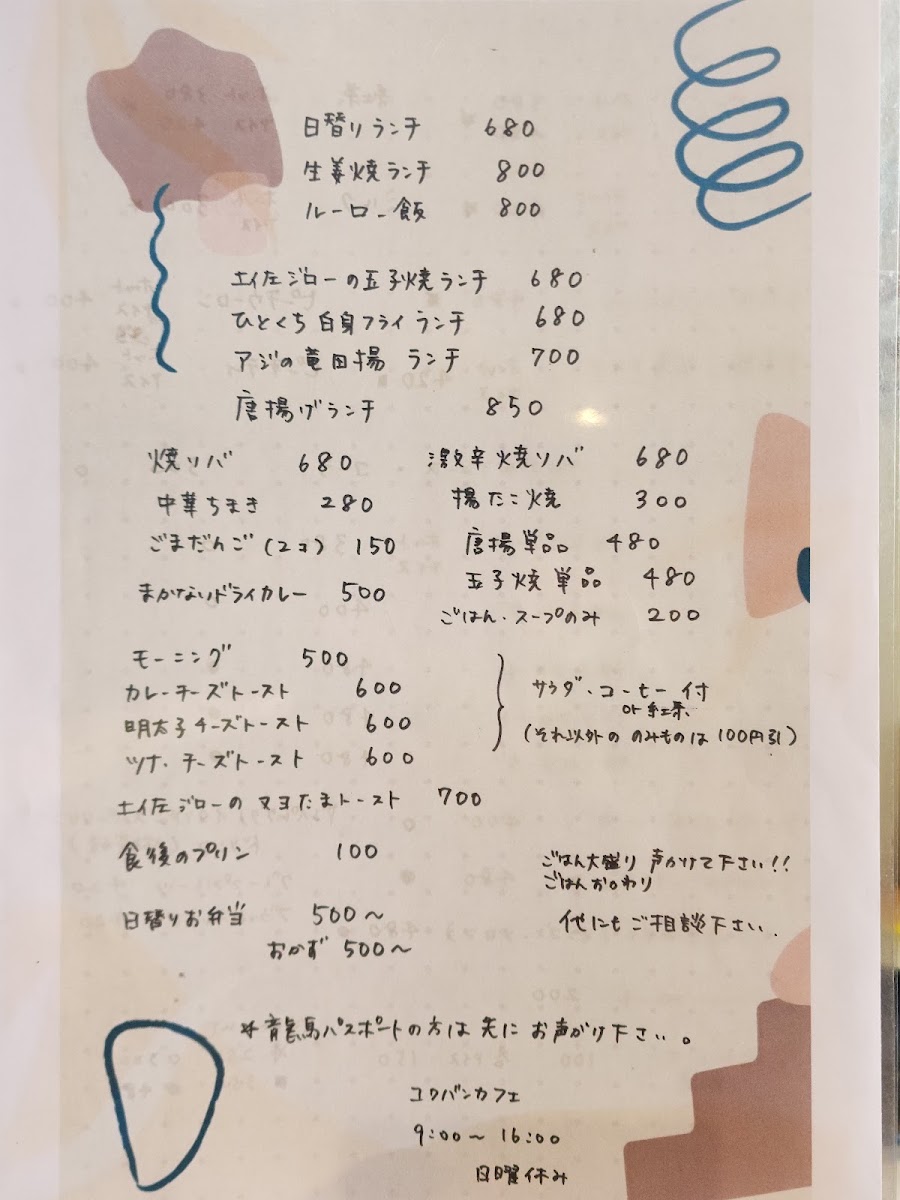 日替りランチ 680
生姜焼ランチ 800
ルーロー飯 800
土佐ジローの玉子焼ランチ 680
ひとくち白身フライランチ 680
アジの竜田揚 ランチ 700
唐揚げランチ 850
焼ソバ 680
激辛焼ソバ 680
中華ちまき 280
揚たこ焼 300
ごまだんご(2コ) 150
唐揚単品 480
玉子焼単品 480
まかないドライカレー 500
ごはん・スープのみ 200
モーニング 500
カレーチーズトースト 600
明太子チーズトースト 600
ツナ・チーズトースト 600
サラダ・コーヒー付
or 紅茶
(それ以外の のみものは 100円引)
土佐ジローの マヨたまトースト 700
食後のプリン 100
ごはん大盛り 声かけて下さい!!
ごはんおかわり
日替りお弁当 500〜
おかず 500〜
他にもご相談下さい.
*龍馬パスポートの方は先に お声がけ下さい。
コウバンカフェ
9:00〜16:00
日曜休み